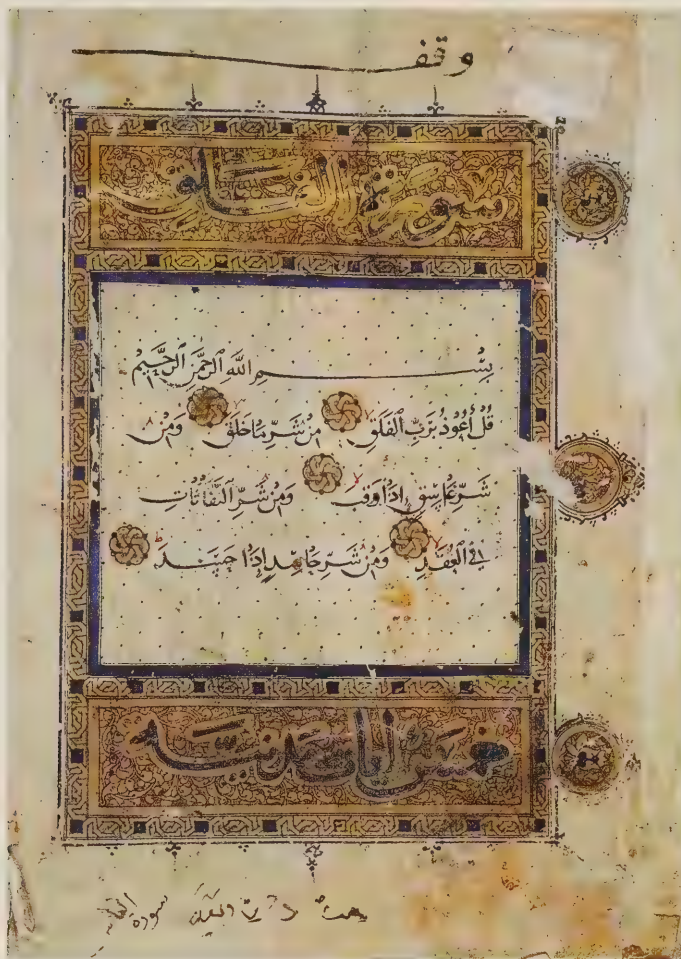 وقف
سورة الفلق
بِسْمِ اللَّهِ الرَّحْمَنِ الرَّحِيمِ
قُلْ أَعُوذُ بِرَبِّ الْفَلَقِ مِنْ شَرِّ مَا خَلَقَ وَمِنْ
شَرِّ غَاسِقٍ إِذَا وَقَبَ وَمِنْ شَرِّ النَّفَّاثَاتِ
فِي الْعُقَدِ وَمِنْ شَرِّ حَاسِدٍ إِذَا حَسَدَ
خمس ايات مدنية
سورة